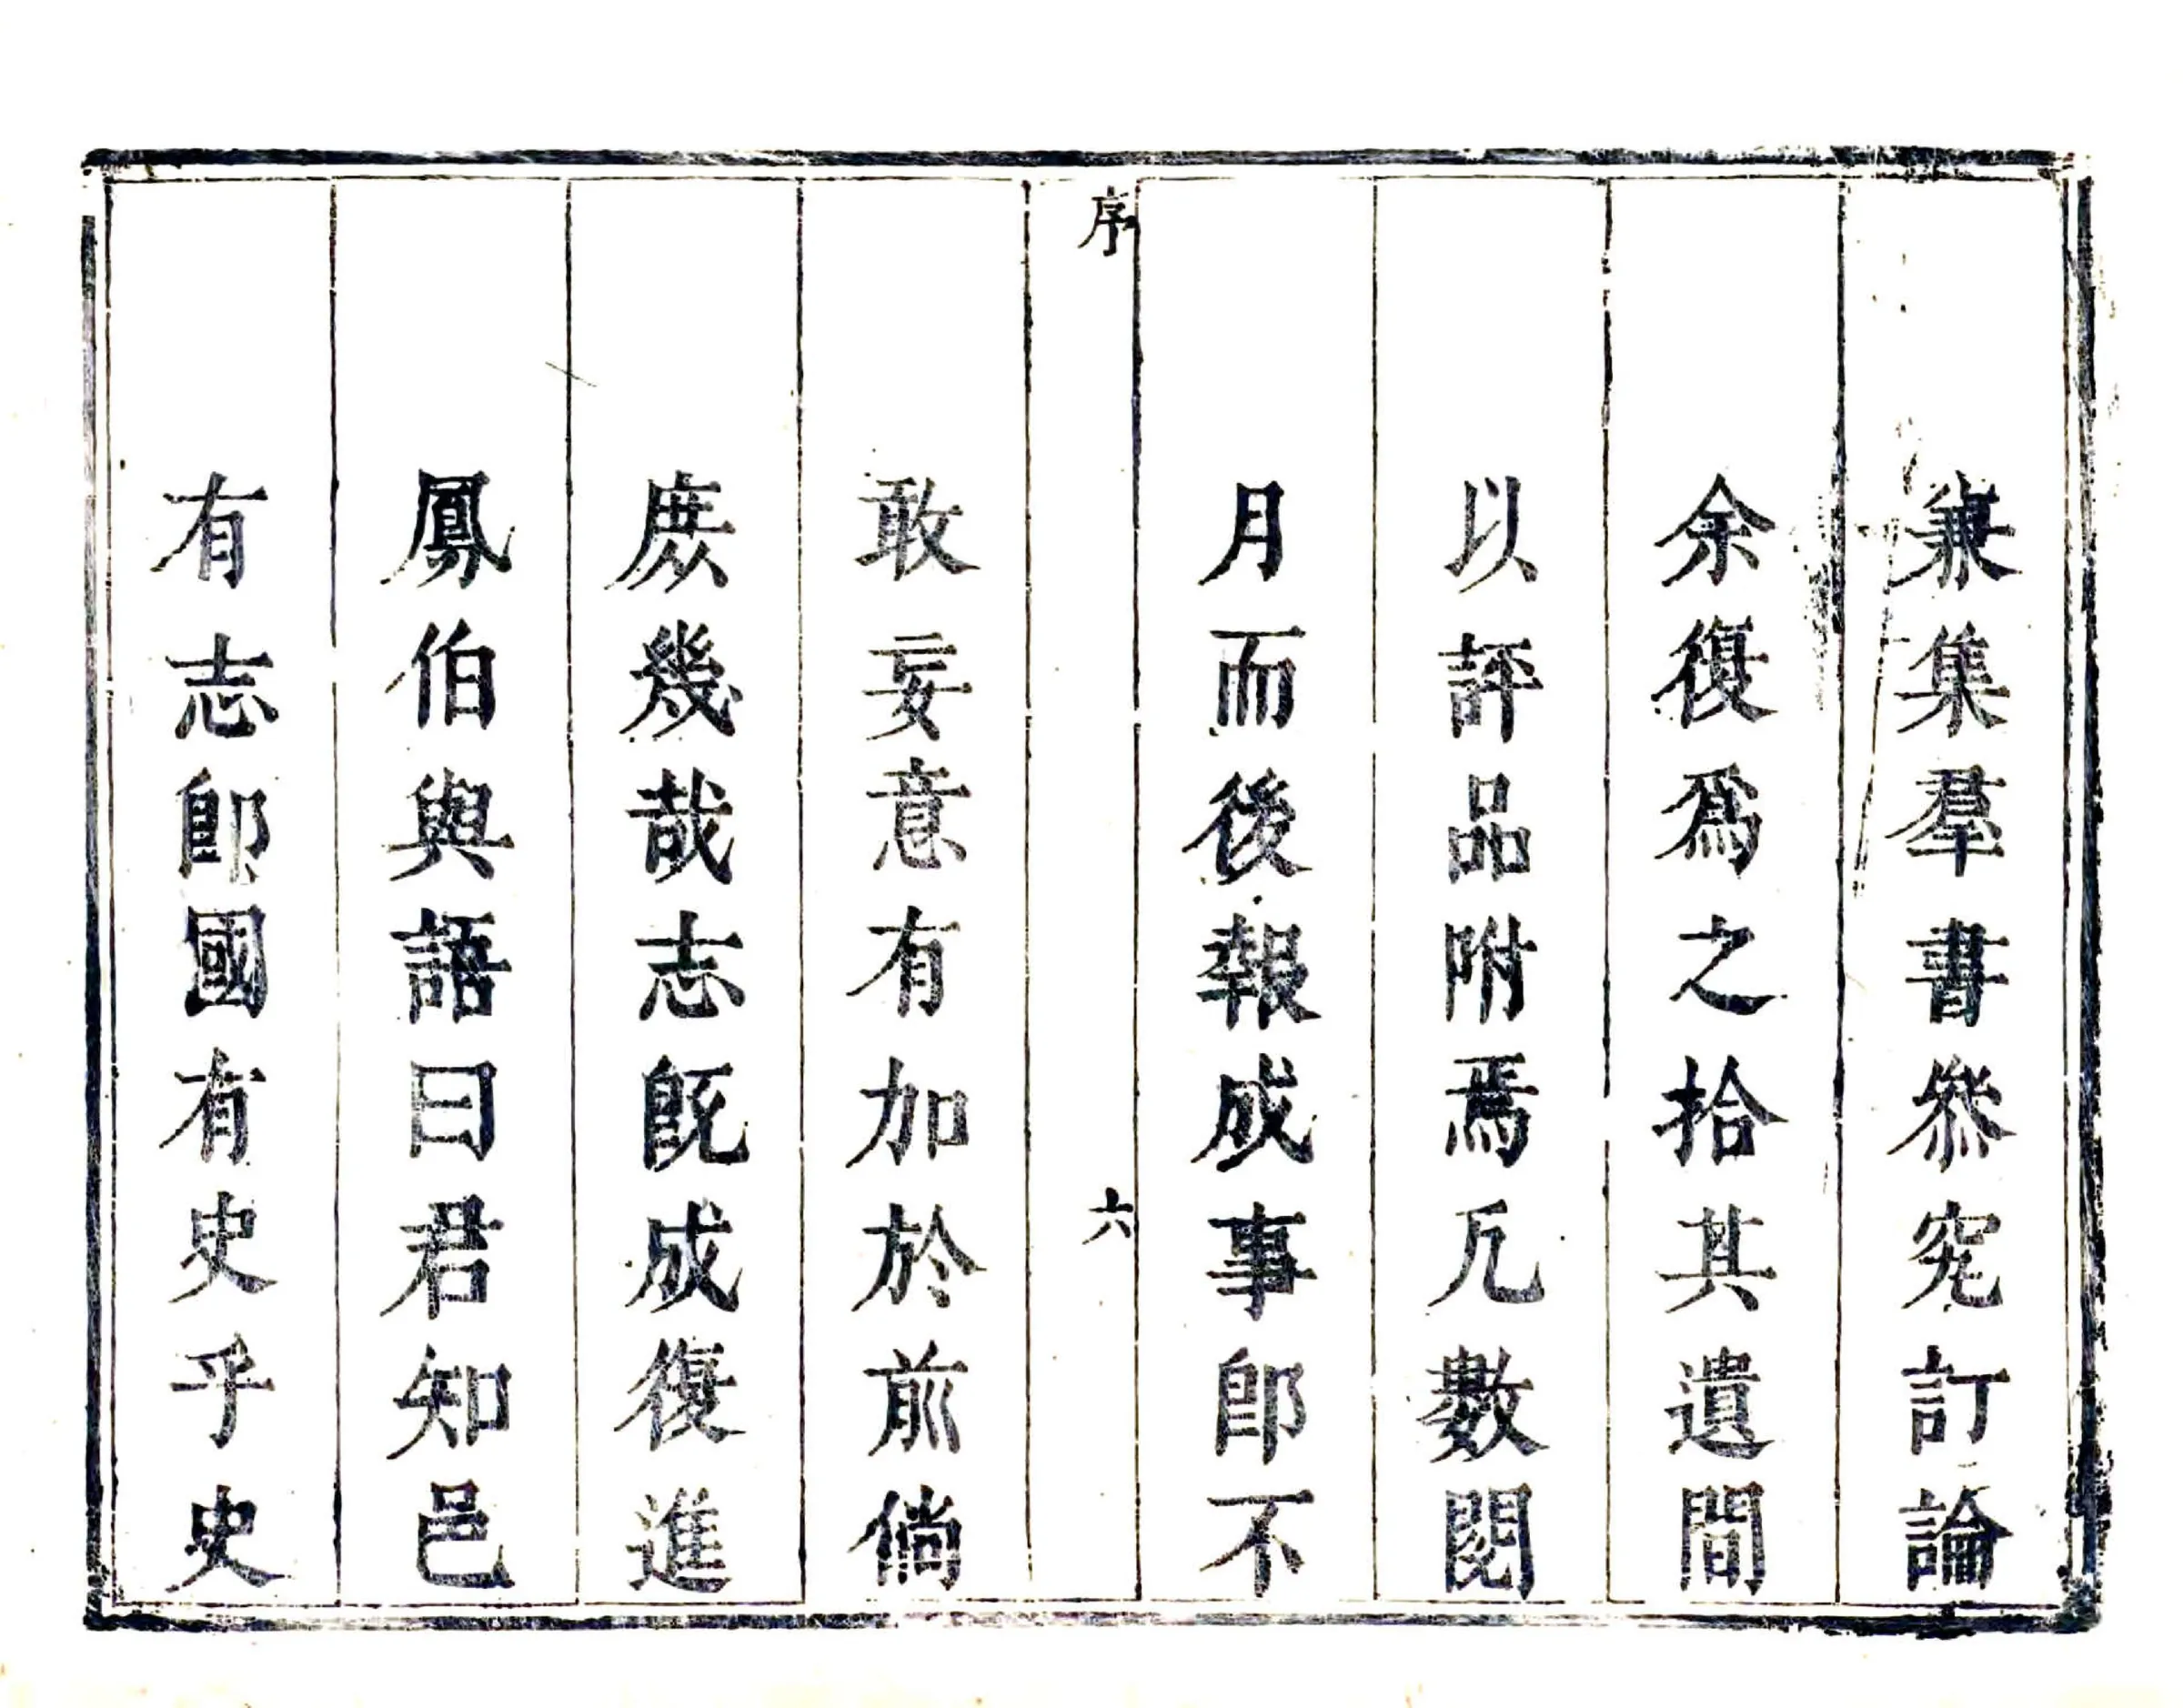 兼集羣書叅究訂論
余復爲之拾其遺間
以評品附焉凡數閱
月而後報成事即不
序
六
敢妄意有加於前倘
庶幾哉志旣成復進
鳳伯與語曰君知邑
有志即國有史乎史